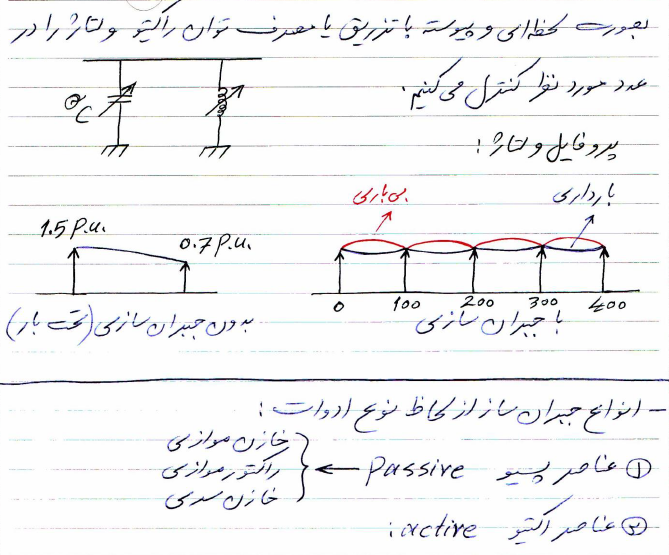 بصورت لحظه‌ای و پیوسته با تزریق یا مصرف توان راکتیو ولتاژ را در
عدد مورد نظر کنترل می‌کنیم.
Q_C
پروفایل ولتاژ:
بی‌باری
بارداری
1.5 P.u.
0.7 P.u.
0 100 200 300 400
با جبران سازی
بدون جبران سازی (تحت بار)
- انواع جبران ساز از لحاظ نوع ادوات:
① عناصر پسیو Passive ←
خازن موازی
راکتور موازی
خازن سری
② عناصر اکتیو active: